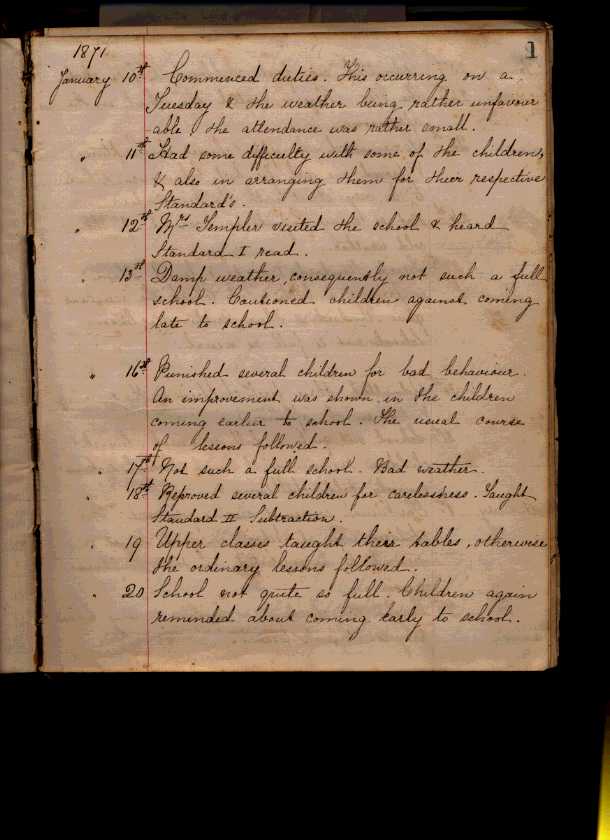 1
1871
January 10th Commenced duties. This occurring on a
Tuesday & the weather being rather unfavour
able the attendance was rather small.
" 11th Had some difficulty with some of the children,
& also in arranging them for their respective
Standard's.
" 12th Mrs Templer visited the school & heard
Standard I read.
13th Damp weather, consequently not such a full
school. Cautioned children against coming
late to school.
" 16th Punished several children for bad behaviour.
An improvement was shown in the children
coming earlier to school. The usual course
of lessons followed.
" 17th Not such a full school. Bad weather.
" 18th Reproved several children for carelessness. Taught
Standard II Subtraction.
" 19 Upper classes taught their tables, otherwise
the ordinary lessons followed.
" 20 School not quite so full. Children again
reminded about coming early to school.